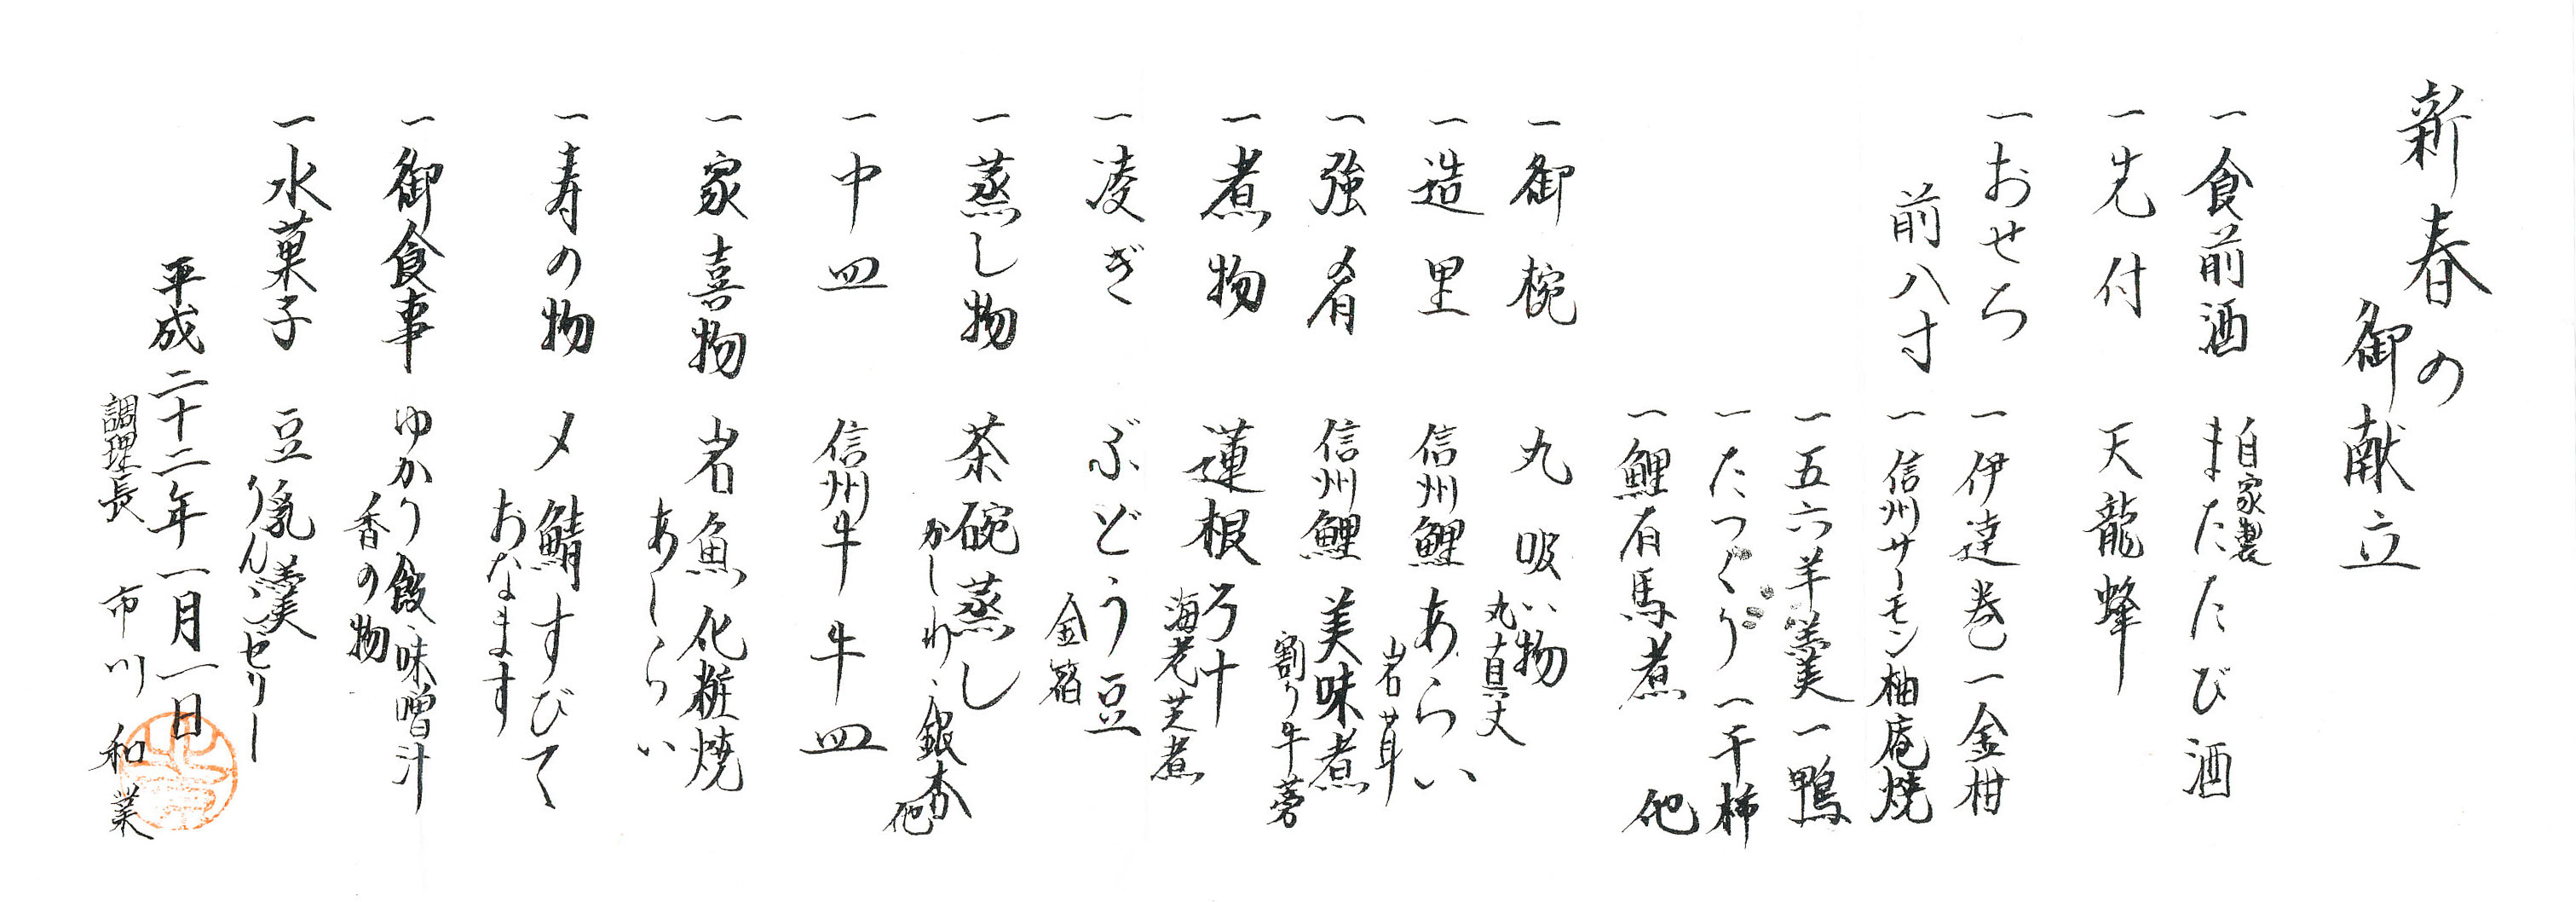 新春の
御献立
一食前酒 自家製
またたび酒
一先付 天龍蜂
一おせち 一伊達巻 一金柑
前八寸 一信州サーモン柚庵焼
一五六羊羹 一鴨
一たつくり 一干柿
一鯉有馬煮 他
一御椀 丸吸い物
丸真丈
一造里 信州鯉あらい
岩茸
一強肴 信州鯉美味煮
割り牛蒡
一煮物 蓮根
海老芝煮
一凌ぎ ぶどう豆
金箔
一蒸し物 茶碗蒸し
かしわ、銀杏
他
一中皿 信州牛牛皿
一家喜物 岩魚化粧焼
あしらい
一寿の物 〆鯖すびて
おなます
一御食事 ゆかり飯、味噌汁
香の物
一水菓子 豆乳羹
りんごゼリー
平成二十二年一月一日
調理長 市川和業